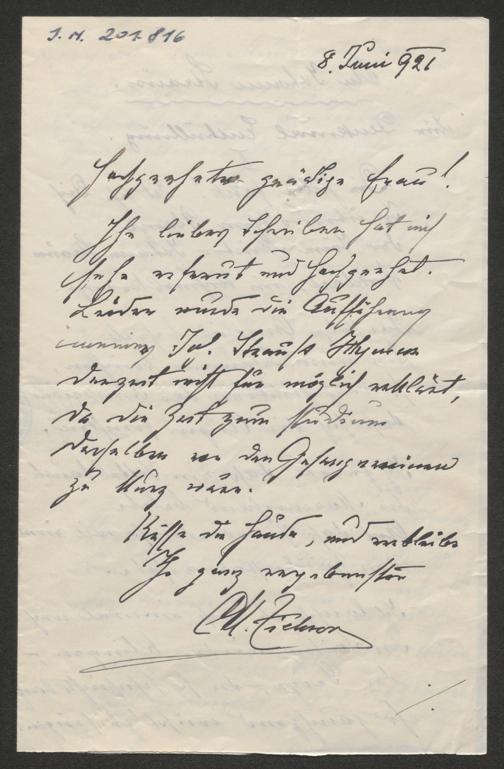 J. N. 201.816
8. Juni 921
Hochgeehrte gnädige Frau!
Ihr liebes Schreiben hat mich
sehr erfreut und hochgeehrt.
Leider wurde die Aufführung
meiner Joh. Strauß Hymne
derzeit nicht für möglich erklärt,
da die Zeit zum Studium
derselben von den Gesangvereinen
zu kurz wäre.
Küsse die Hände, und verbleibe
Ihr ganz ergebenster